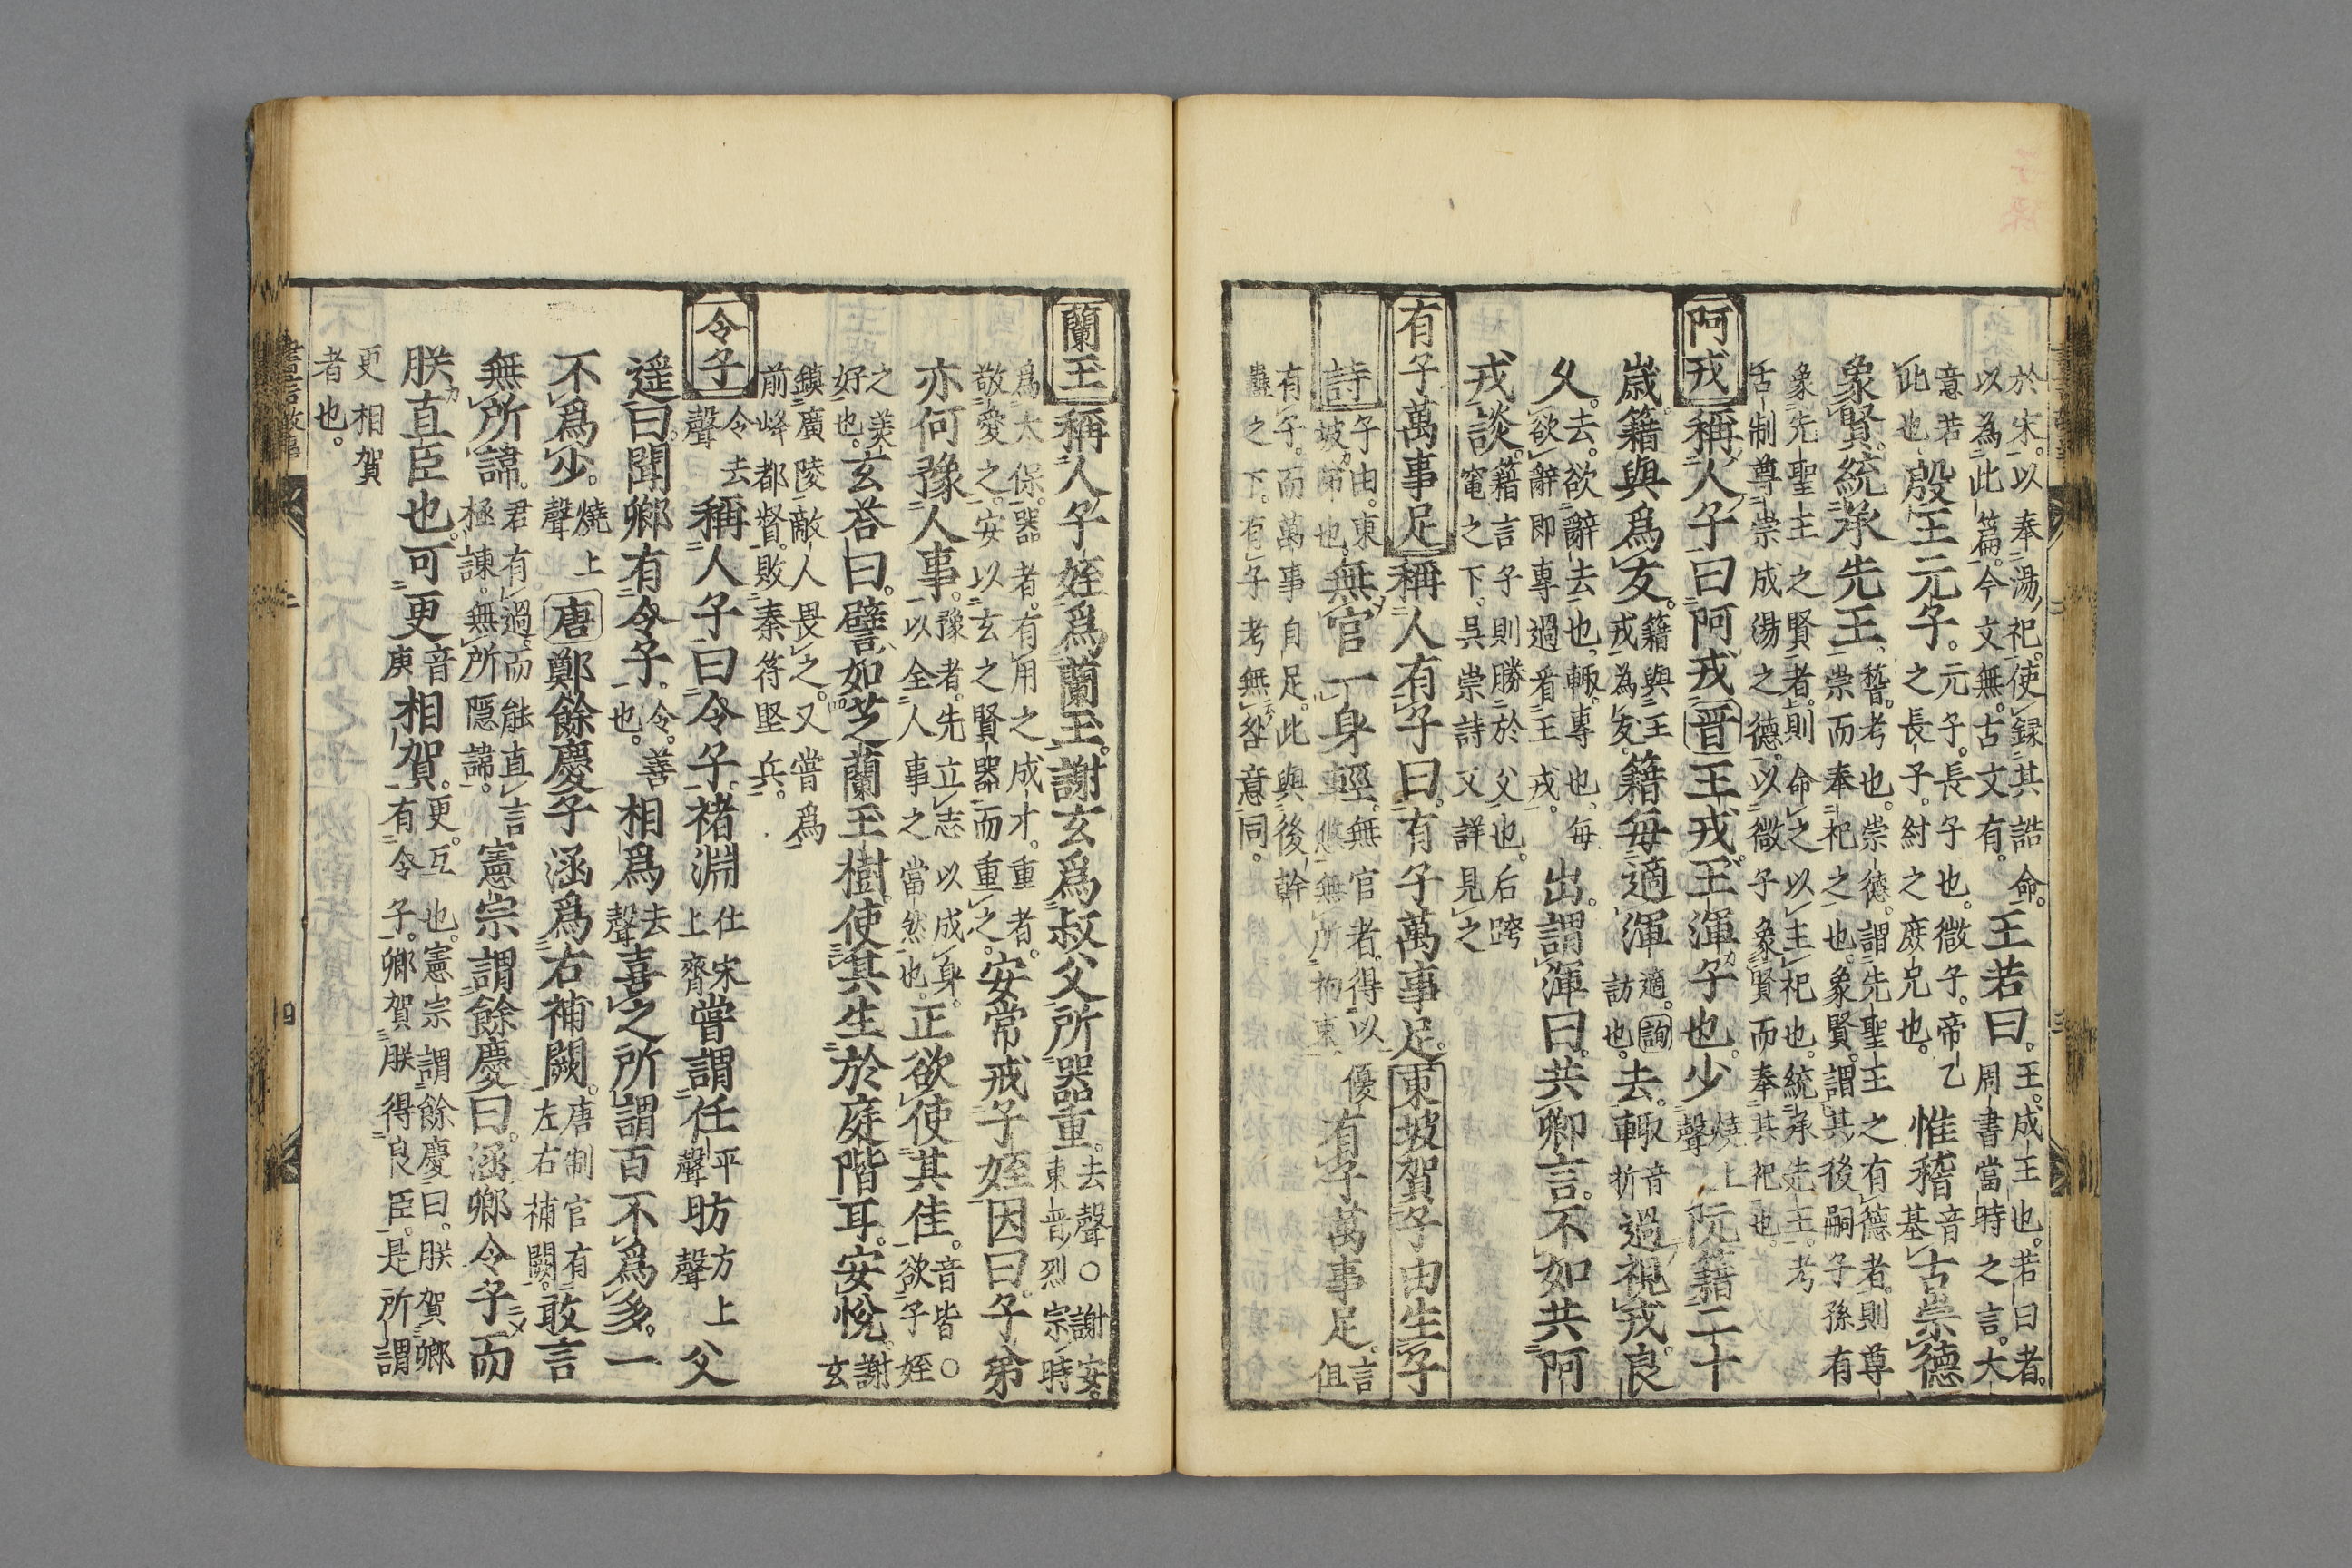 於宋以奉湯祀使録其誥命
以為此篇今文無古文有
王若曰
王成王也若曰者
周書當時之言大
意若
此也
殷王元子
元子長子也微子帝乙
之長子紂之庶兄也
惟稽
音
基
古崇德
象賢統承先王
稽考也崇德謂先聖王之有德者則尊
崇而奉祀之也象賢謂其後嗣子孫有
象先聖王之賢者則命之以主祀也統承先王考
舌制尊崇成湯之德以微子象賢而奉其祀也
阿戎
稱人子曰阿戎
晋
王戎王渾子也少
燒上
聲
阮籍二十
歲籍與爲友
籍與王
戎為友
籍每適渾
適詢
訪也
去輙
音
折
過視戎良
久
去欲辭去也輙專也每
欲辭即專過看王戎
出謂渾曰共卿言不如共阿
戎談
籍言子則勝於父也后跨
竃之下吳崇詩又詳見之
有子萬事足
稱人有子曰有子萬事足
東坡賀子由生子
詩
子由東
坡弟也
無官一身輕
無官者得以優
悠無所拘束
有子萬事足
言
但
有子而萬事自足此與後幹
蠱之下有子考無咎意同
蘭玉
稱人子姪爲蘭玉謝玄爲叔父所器重
去聲〇謝安
東晋烈宗時
爲太保器者有用之成才重者
敬愛之安以玄之賢器而重之
安常戒子姪因曰子弟
亦何豫人事
豫者先立志以成身
以全人事之當然也
正欲使其佳
音皆〇
欲子姪
之美
好也
玄荅曰譬如芝蘭玉樹使其生於庭階耳安悅
謝
玄
鎮廣陵敵人畏之又嘗爲
前峰都督敗秦符堅兵
令子
令去
聲
稱人子曰令子褚淵
仕宋
上齊
嘗謂任
平
聲
昉
方上
聲
父
遥曰聞卿有令子
令善
也
相爲
去
聲
喜之所謂百不爲多一
不爲少
燒上
聲
唐
鄭餘慶子涵爲右補闕
唐制官有
左右補闕
敢言
無所諱
君有過而能直言
極諫無所隱諱
憲宗謂餘慶曰涵卿令子而
朕直臣也可更
音
庚
相賀
更互也憲宗謂餘慶曰朕賀卿
有令子卿賀朕得良臣是所謂
更相賀
者也
四